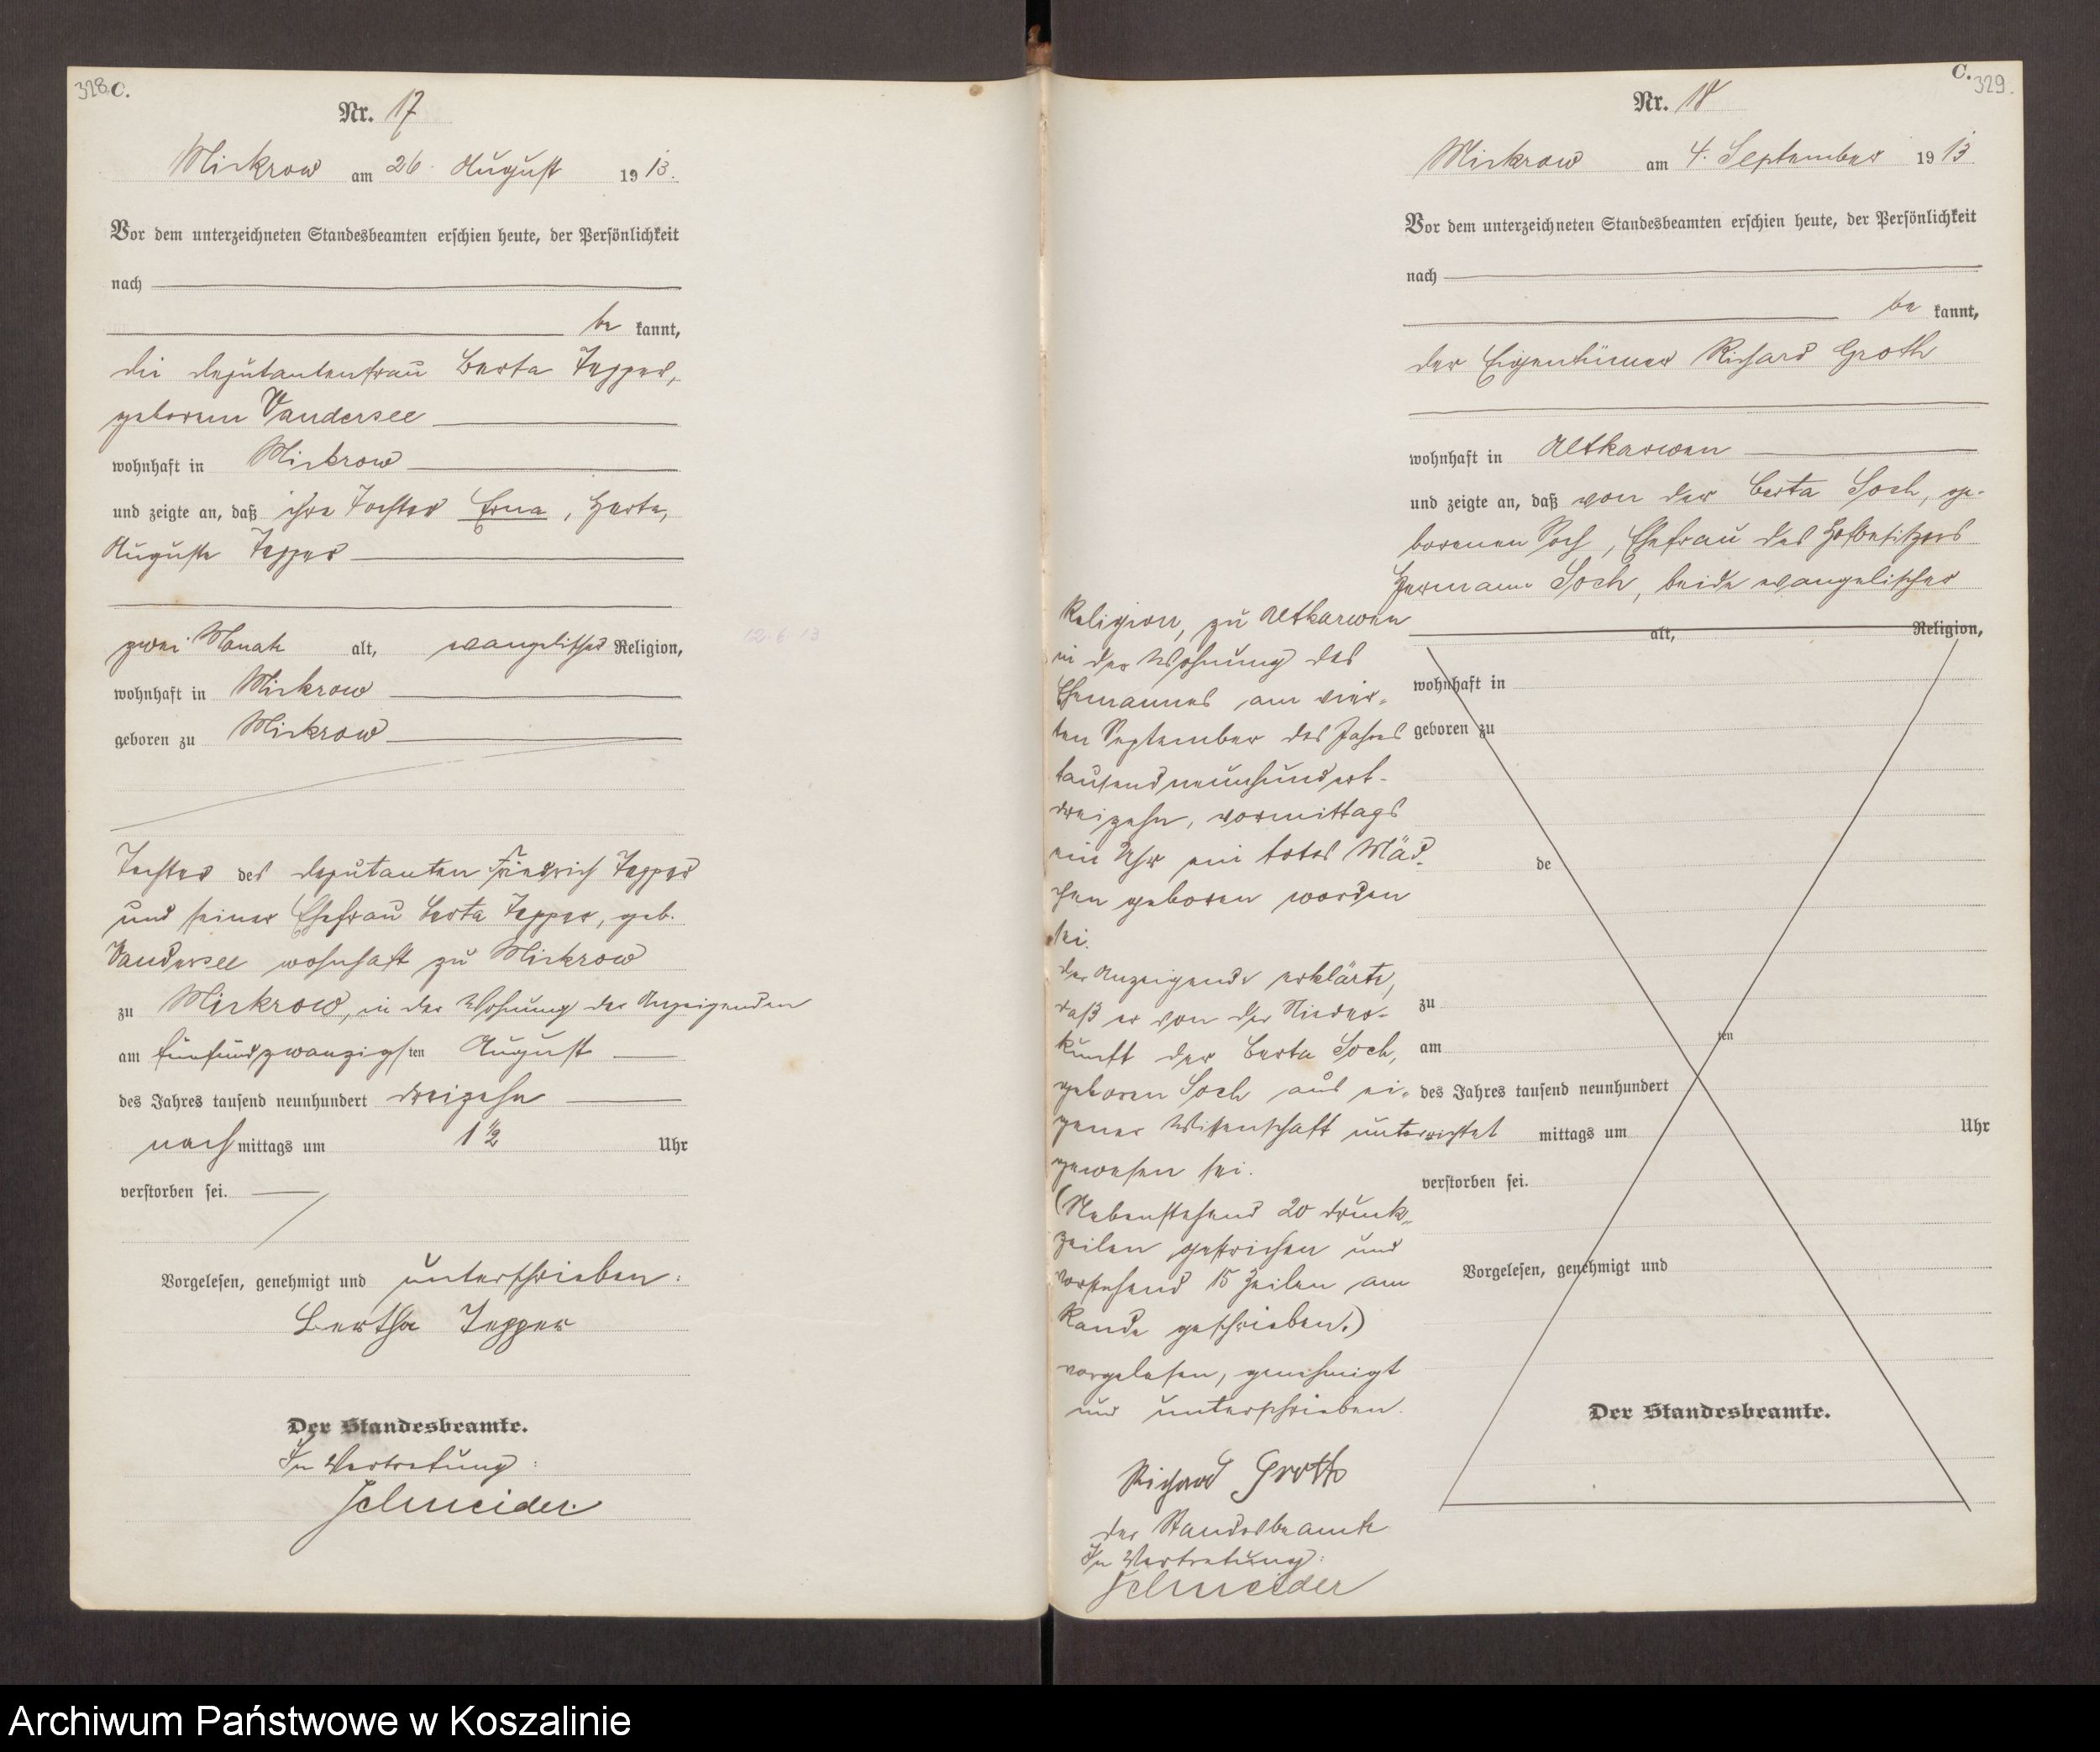 328 C.
Nr. 17
Mickrow am 26. August 1913.
Vor dem unterzeichneten Standesbeamten erschien heute, der Persönlichkeit
nach
be kannt,
die Deputantenfrau Berta Tepper,
geborene Vandersee
wohnhaft in Mickrow
und zeigte an, daß ihre Tochter Erna, Herta,
Auguste Tepper
zwei Monate alt, evangelischer Religion,
12.6.13
wohnhaft in Mickrow
geboren zu Mickrow
Tochter des Deputanten Friedrich Tepper
und seiner Ehefrau Berta Tepper, geb.
Vandersee wohnhaft zu Mickrow
zu Mickrow, in der Wohnung der Anzeigenden
am fünfundzwanzigsten August
des Jahres tausend neunhundert dreizehn
nachmittags um 1 1/2 Uhr
verstorben sei.
Vorgelesen, genehmigt und unterschrieben:
Bertha Tepper
Der Standesbeamte.
In Vertretung:
Schneider.
C. 329.
Nr. 18
Mickrow am 4. September 1913
Vor dem unterzeichneten Standesbeamten erschien heute, der Persönlichkeit
nach
be kannt,
der Eigentümer Richard Groth
wohnhaft in Altkarwen
und zeigte an, daß von der Berta Soch, ge-
borenen Soch, Ehefrau des Hofbesitzers
Hermann Soch, beide evangelischer
Religion, zu Altkarwen
in der Wohnung des
Ehemannes am vier-
ten September des Jahres
tausendneunhundert-
dreizehn, vormittags
ein Uhr ein totes Mäd-
chen geboren worden
sei.
Der Anzeigende erklärte,
daß er von der Nieder-
kunft der Berta Soch,
geboren Soch aus ei-
gener Wissenschaft unterrichtet
gewesen sei.
(Nebenstehend 20 Druck-
zeilen gestrichen und
vorstehend 15 Zeilen am
Rande geschrieben.)
vorgelesen, genehmigt
und unterschrieben.
Richard Groth
Der Standesbeamte
In Vertretung:
Schneider
alt, Religion,
wohnhaft in
geboren zu
de
zu
am ten
des Jahres tausend neunhundert
mittags um Uhr
verstorben sei.
Vorgelesen, genehmigt und
Der Standesbeamte.
Archiwum Państwowe w Koszalinie